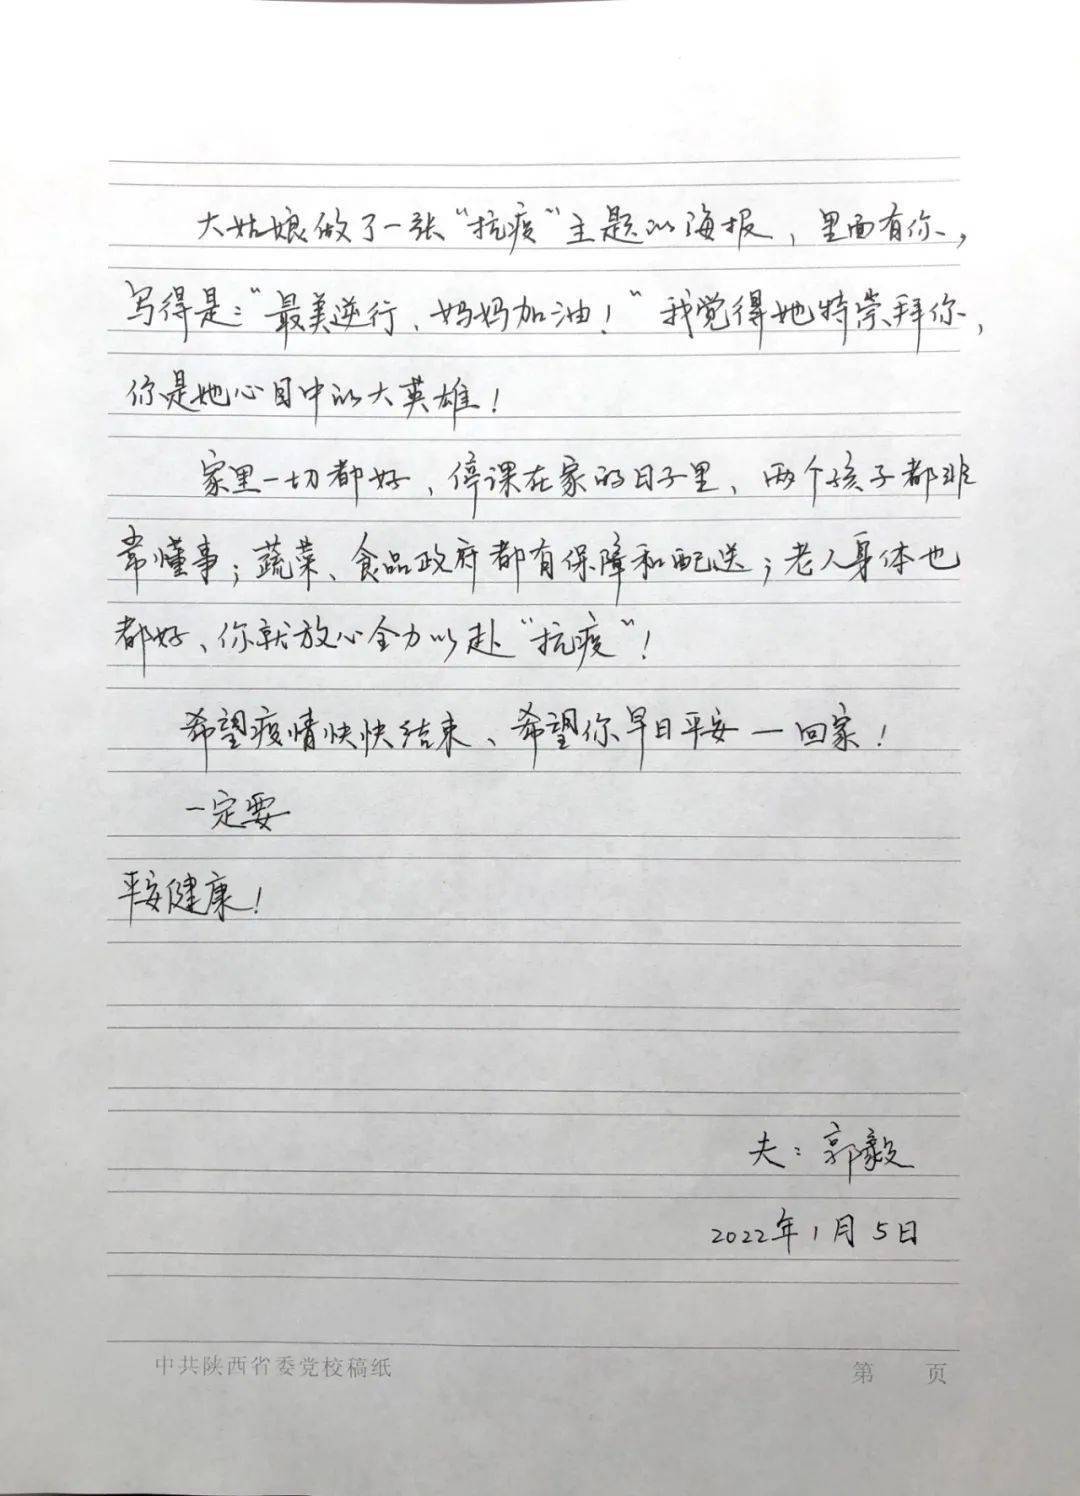 大姑娘做了一张“抗疫”主题的海报，里面有你，
写得是：“最美逆行、妈妈加油！”我觉得她特崇拜你，
你是她心目中的大英雄！
家里一切都好，停课在家的日子里、两个孩子都非
常懂事；蔬菜、食品政府都有保障和配送；老人身体也
都好、你就放心全力以赴“抗疫”！
希望疫情快快结束、希望你早日平安一回家！
一定要
平安健康！
夫：郭毅
2022年1月5日
中共陕西省委党校稿纸
第 页